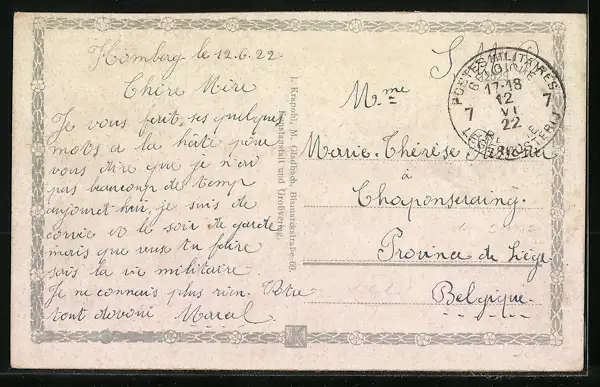 Homberg le 12.6.22
Chère Mère
Je vous fait ses quelques
mots a la hâte pour
vous dire que je n'ai
pas beaucoup de temp
aujourd-hui, je suis de
corvée et le soir de garde
mais que veux tu faire
sais la vie militaire
Je ne connais plus rien. Votre
tout dévoué Marcel
L. Krapohl, M. Gladbach, Bismarckstraße 69,
Kunstanstalt und Grossverlag.
S. M.
Mme
Marie-Thérèse
à
Chaponseraing.
Province de Liège
Belgique
POSTES MILITAIRES
BELGIQUE
17-18
12
VI
22
7 7
LEGERPOSTERIJ
K